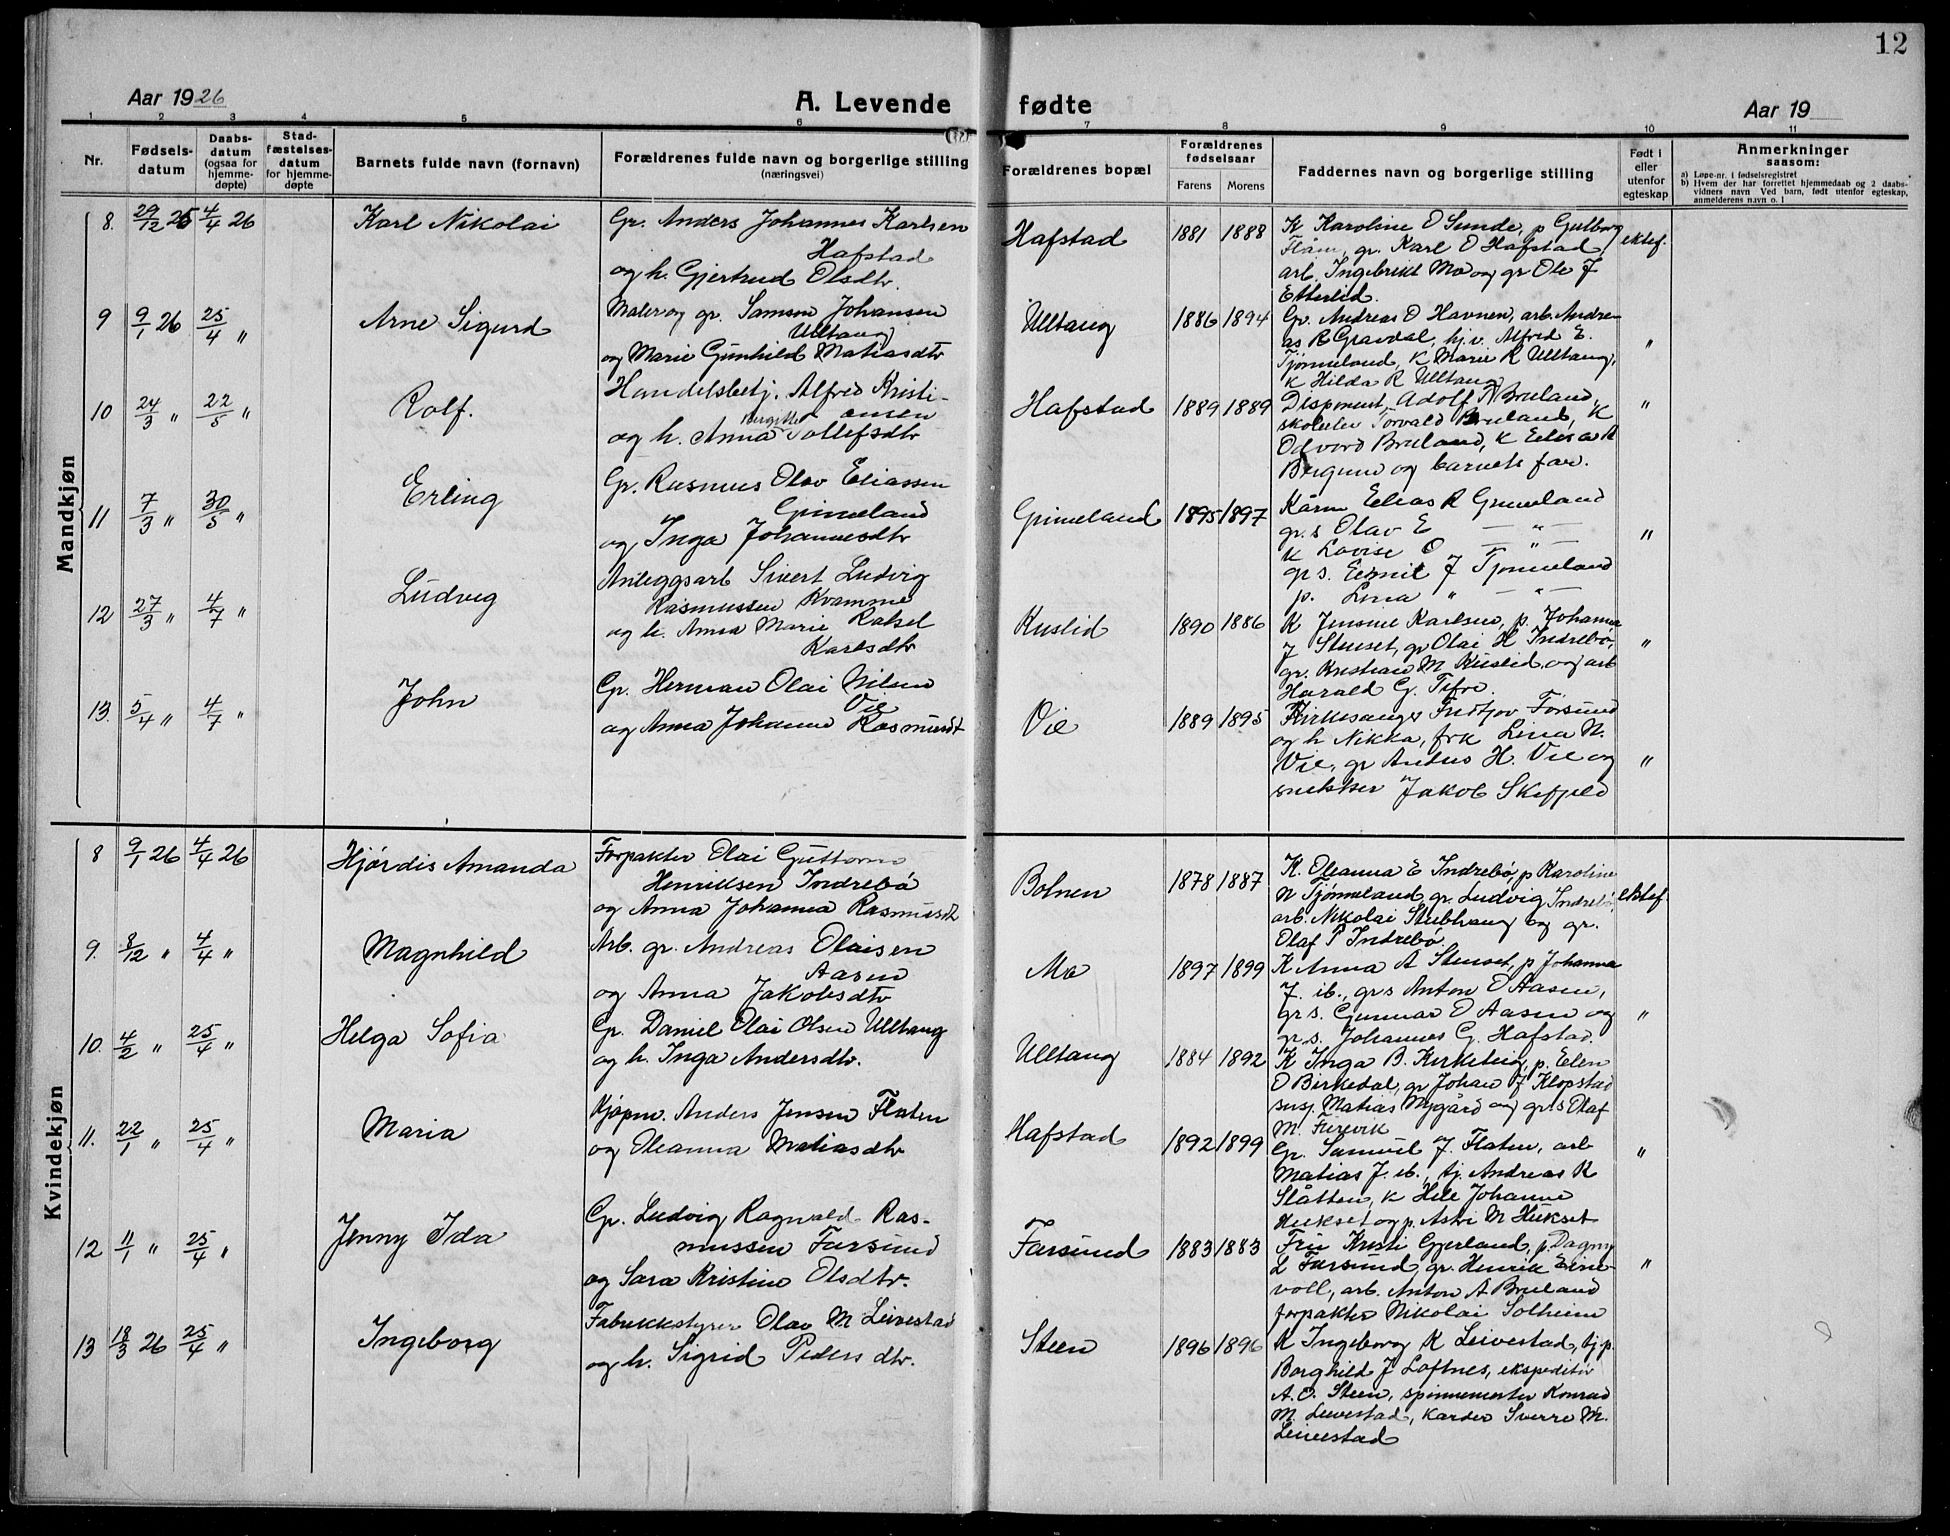 12
Aar 1926
A. Levende fødte
Aar 19
1 2 3 4 5 6 7 8 9 10 11
Nr.
Fødsels-
datum
Daabs-
datum
(ogsaa for
hjemme-
døpte)
Stad-
fæstelses-
datum
for hjemme-
døpte
Barnets fulde navn (fornavn)
Forældrenes fulde navn og borgerlige stilling
(næringsvei)
Forældrenes bopæl
Forældrenes
fødselsaar
Farens Morens
Faddernes navn og borgerlige stilling
Født i
eller
utenfor
egteskap
Anmerkninger
saasom:
a) Løpe-nr. i fødselsregistret
b) Hvem der har forrettet hjemmedaab og 2 daabs-
vidners navn Ved barn, født utenfor egteskap,
anmelderens navn o. l
Mandkjøn
8. 29/12 25 4/4 26 Karl Nikolai
Gr. Anders Johannes Karlsen
Hafstad
og h. Gjertrud Olsdtr.
Hafstad 1881 1888
K Karoline O Sunde, p Gulborg
Flåm, gr. Karl O Hafstad,
arb. Ingebrikt Mo og gr Ole J
Etterlid.
ektef.
9 9/1 26 25/4 " Arne Sigurd
Maler og gr. Samson Johansen
Ulltang
og Marie Gunhild Matiasdtr
Ulltang 1886 1894
Gr. Andreas O Havnen, arb. Andre-
as R Gravdal, hj.v. Alfred E.
Tjønneland, K Marie R Ulltang,
K Hilda R Ulltang
"
10 24/3 " 22/5 " Rolf.
Handelsbetj. Alfred Kristi-
ansen
og h. Anna Bergitte Tollefsdtr
Hafstad 1889 1889
Disponent Adolf T Bruland,
skoleelev Torvald Bruland, K
Odvord Bruland, K
Bergum og barnets far.
"
11 7/3 " 30/5 " Erling
Gr. Rasmus Olav Eliassen
Grimeland
og Inga Johannesdtr
Grimeland 1895 1897
Kårm Elias R Grimeland
gr.s Olav E — " —
K Lovise O — " —
gr s. Eemil J Tjønneland
p. Lina " — " —
"
12 27/3 " 4/7 " Ludvig
Anleggsarb Sivert Ludvig
Rasmussen Kvamme
og h. Anna Marie Rakel
Karlsdtr
Kuslid 1890 1886
K Jensine Karlsen, p. Johanna
J Stenset, gr Olai H Indrebø,
gr. Kristian M Kuslid og arb
Harald G. Tefre.
"
13. 5/4 " 4/7 " John
Gr. Herman Olai Nilsen
Vie
og Anna Johanne Rasmusdt
Vie 1889 1895
Kirkesanger Fridtjov Førsund
og h Nikka, frk Lina N.
Vie, gr Antus H. Vie og
snekker Jakob Skefjeld
"
Kvindekjøn
8 9/1 26 4/4 26 Hjørdis Amanda
Forpakter Olai Guttorm
Henriksen Indrebø
og Anna Johanna Rasmusdt
Bolnen 1878 1887
K. Oleanna E Indrebø, p Karoline
N Tjønneland, gr. Ludvig Indrebø,
arb. Nikolai Stubhaug og gr.
Olaf P Indrebø.
ektef.
9. 8/12 " 4/4 " Magnhild
Arb. gr. Andreas Olaisen
Aasen
og Anna Jakobsdtr
Mo 1897 1899
K Anna A Stenset, p Johanna
J. ib., grs Anton O Aasen,
gr s. Gunnar O Aasen og
gr s. Johannes G. Hafstad.
"
10. 4/2 " 25/4 " Helga Sofia
Gr. Daniel Olai Olsen Ulltang
og h. Inga Andersdtr.
Ulltang 1884 1892
K Inga B. Kirketeig, p. Eelen
O Birkedal, gr Johan J Klopstad
susj. Matias Nygård og gr.s Olaf
M. Furevik
11. 22/1 " 25/4 " Maria
Kjøpm. Anders Jensen Flaten
og Oleanna Matiasdtr
Hafstad 1892 1899
Gr. Samuel J. Flaten, arb
Matias J. ib., tj. Andreas K
Slåtten, K Hele Johanne
Hukset og p. Astri M Hukset
"
12 11/1 " 25/4 " Jenny Ida
Gr. Ludvig Ragnvald Ras-
mussen Farsund
og Sara Kristine Olsdtr.
Farsund 1883 1883
Fru Kristi Gjerland, p. Dagny
L Farsund, gr. Henrik Eine-
voll, arb. Anton A Bruland
forpakter Nikolai Solheim
"
13 18/3 26 25/4 " Ingeborg
Fabrikkstyrer Olav M Leivestad
og h. Sigrid Pedersdtr.
Steen 1896 1896
K Ingeborg K Leivestad, tj.p.
Borghild J Loftnes, ekspeditør
A. O. Steen, spinnemester Konrad
M. Leivestad, karder Sverre M.
Leivestad